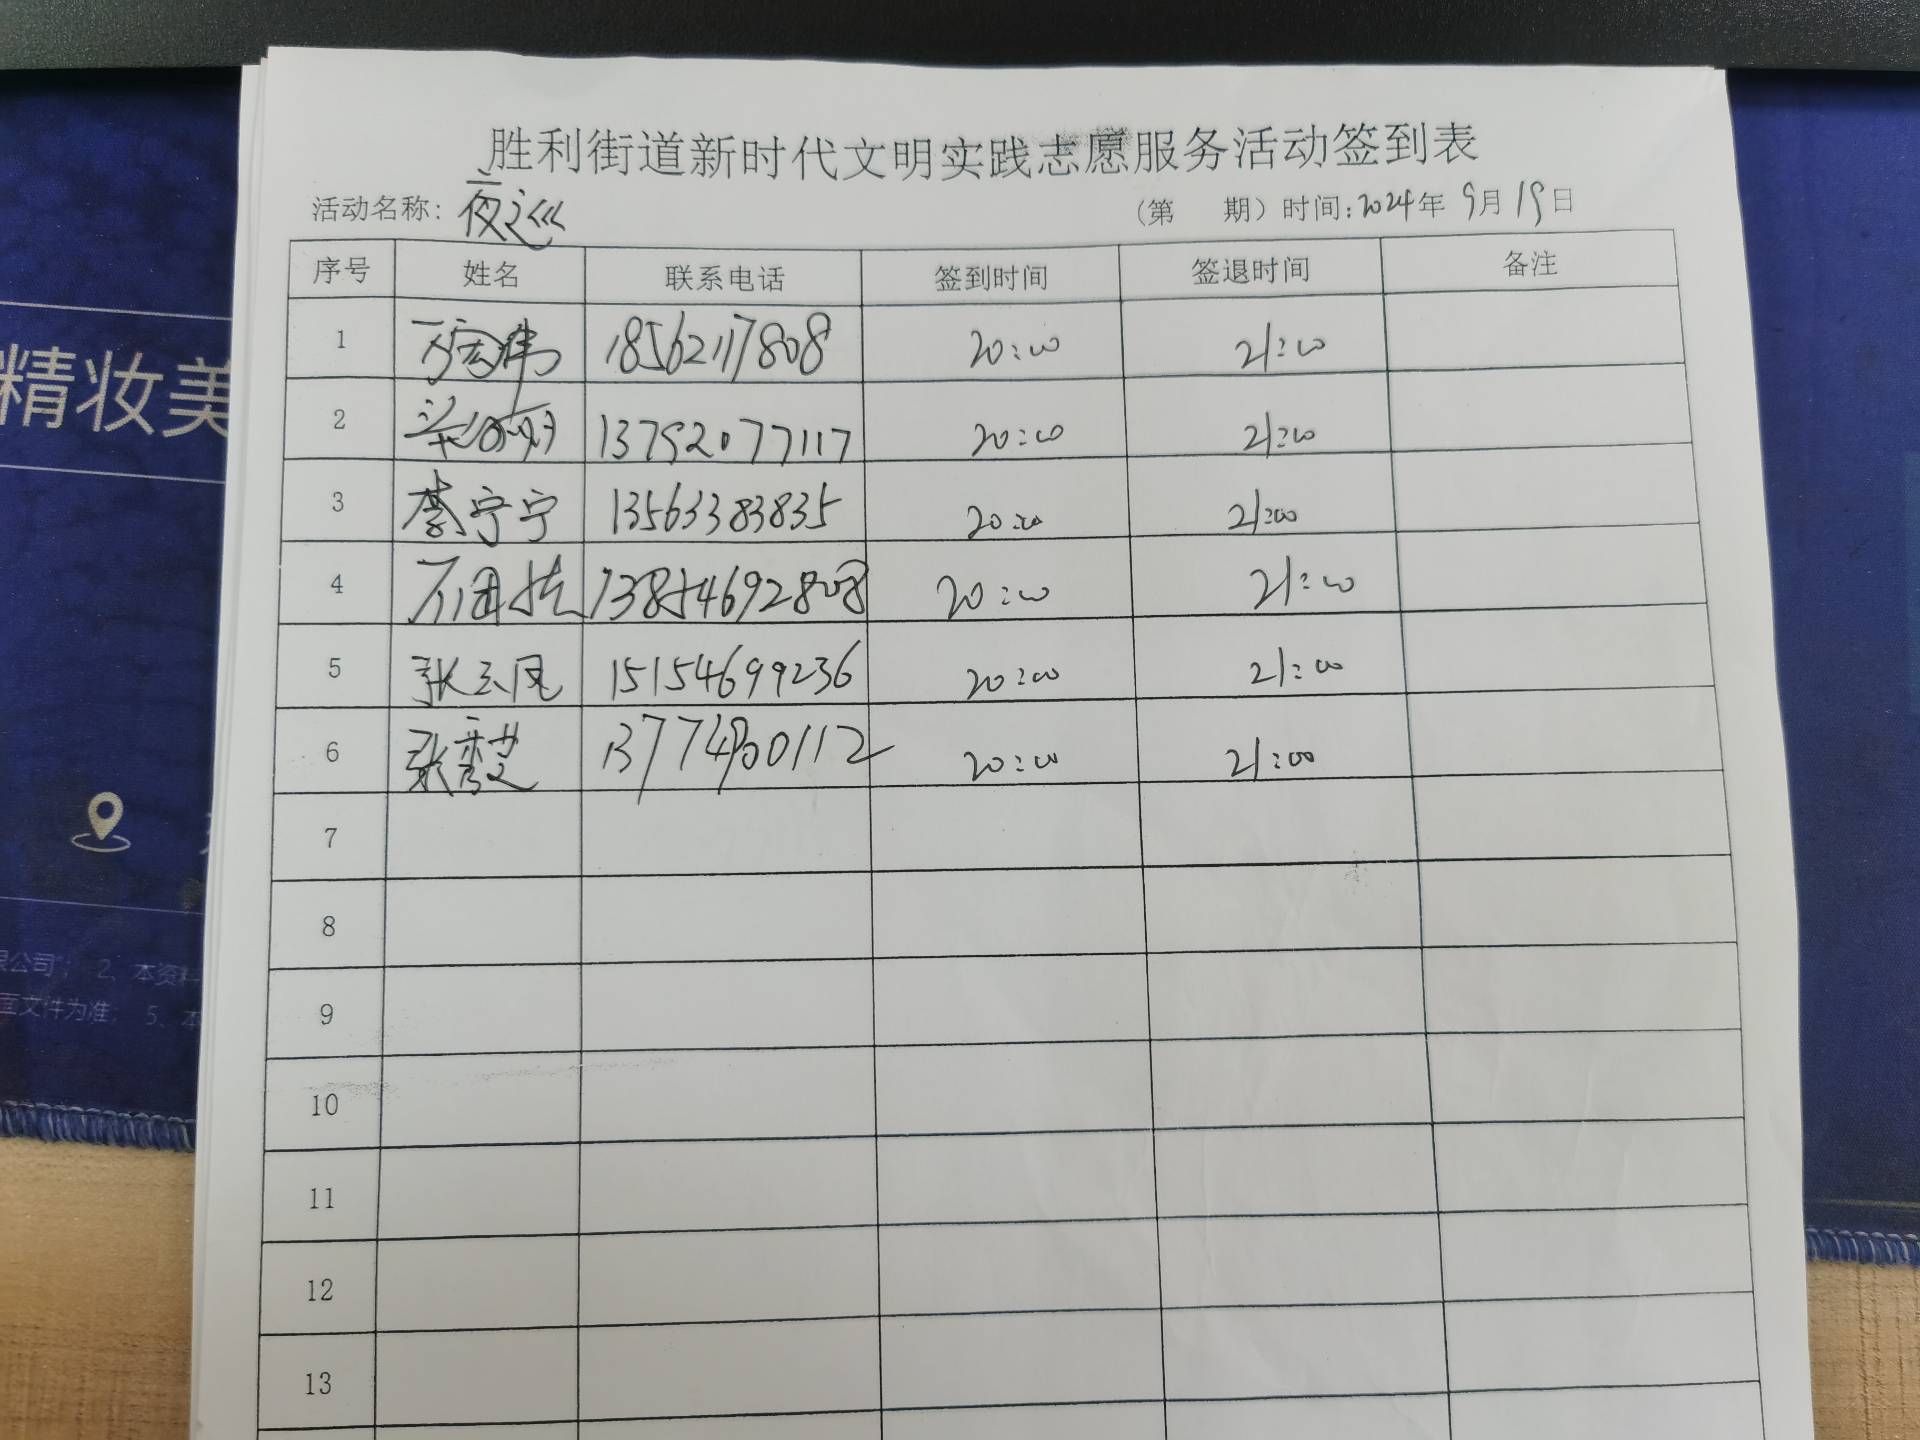 胜利街道新时代文明实践志愿服务活动签到表
活动名称：夜巡
（第 期）时间：2024年 9月 19日
序号 姓名 联系电话 签到时间 签退时间 备注
1 18562117808 20:00 21:00
2 13792077117 20:00 21:00
3 李宁宁 13563383835 20:00 21:00
4 13854692808 20:00 21:00
5 张玉凤 15154699236 20:00 21:00
6 张 13774900112 20:00 21:00
7
8
9
10
11
12
13
精妆美
限公司"； 2、本资料
面文件为准； 5、本